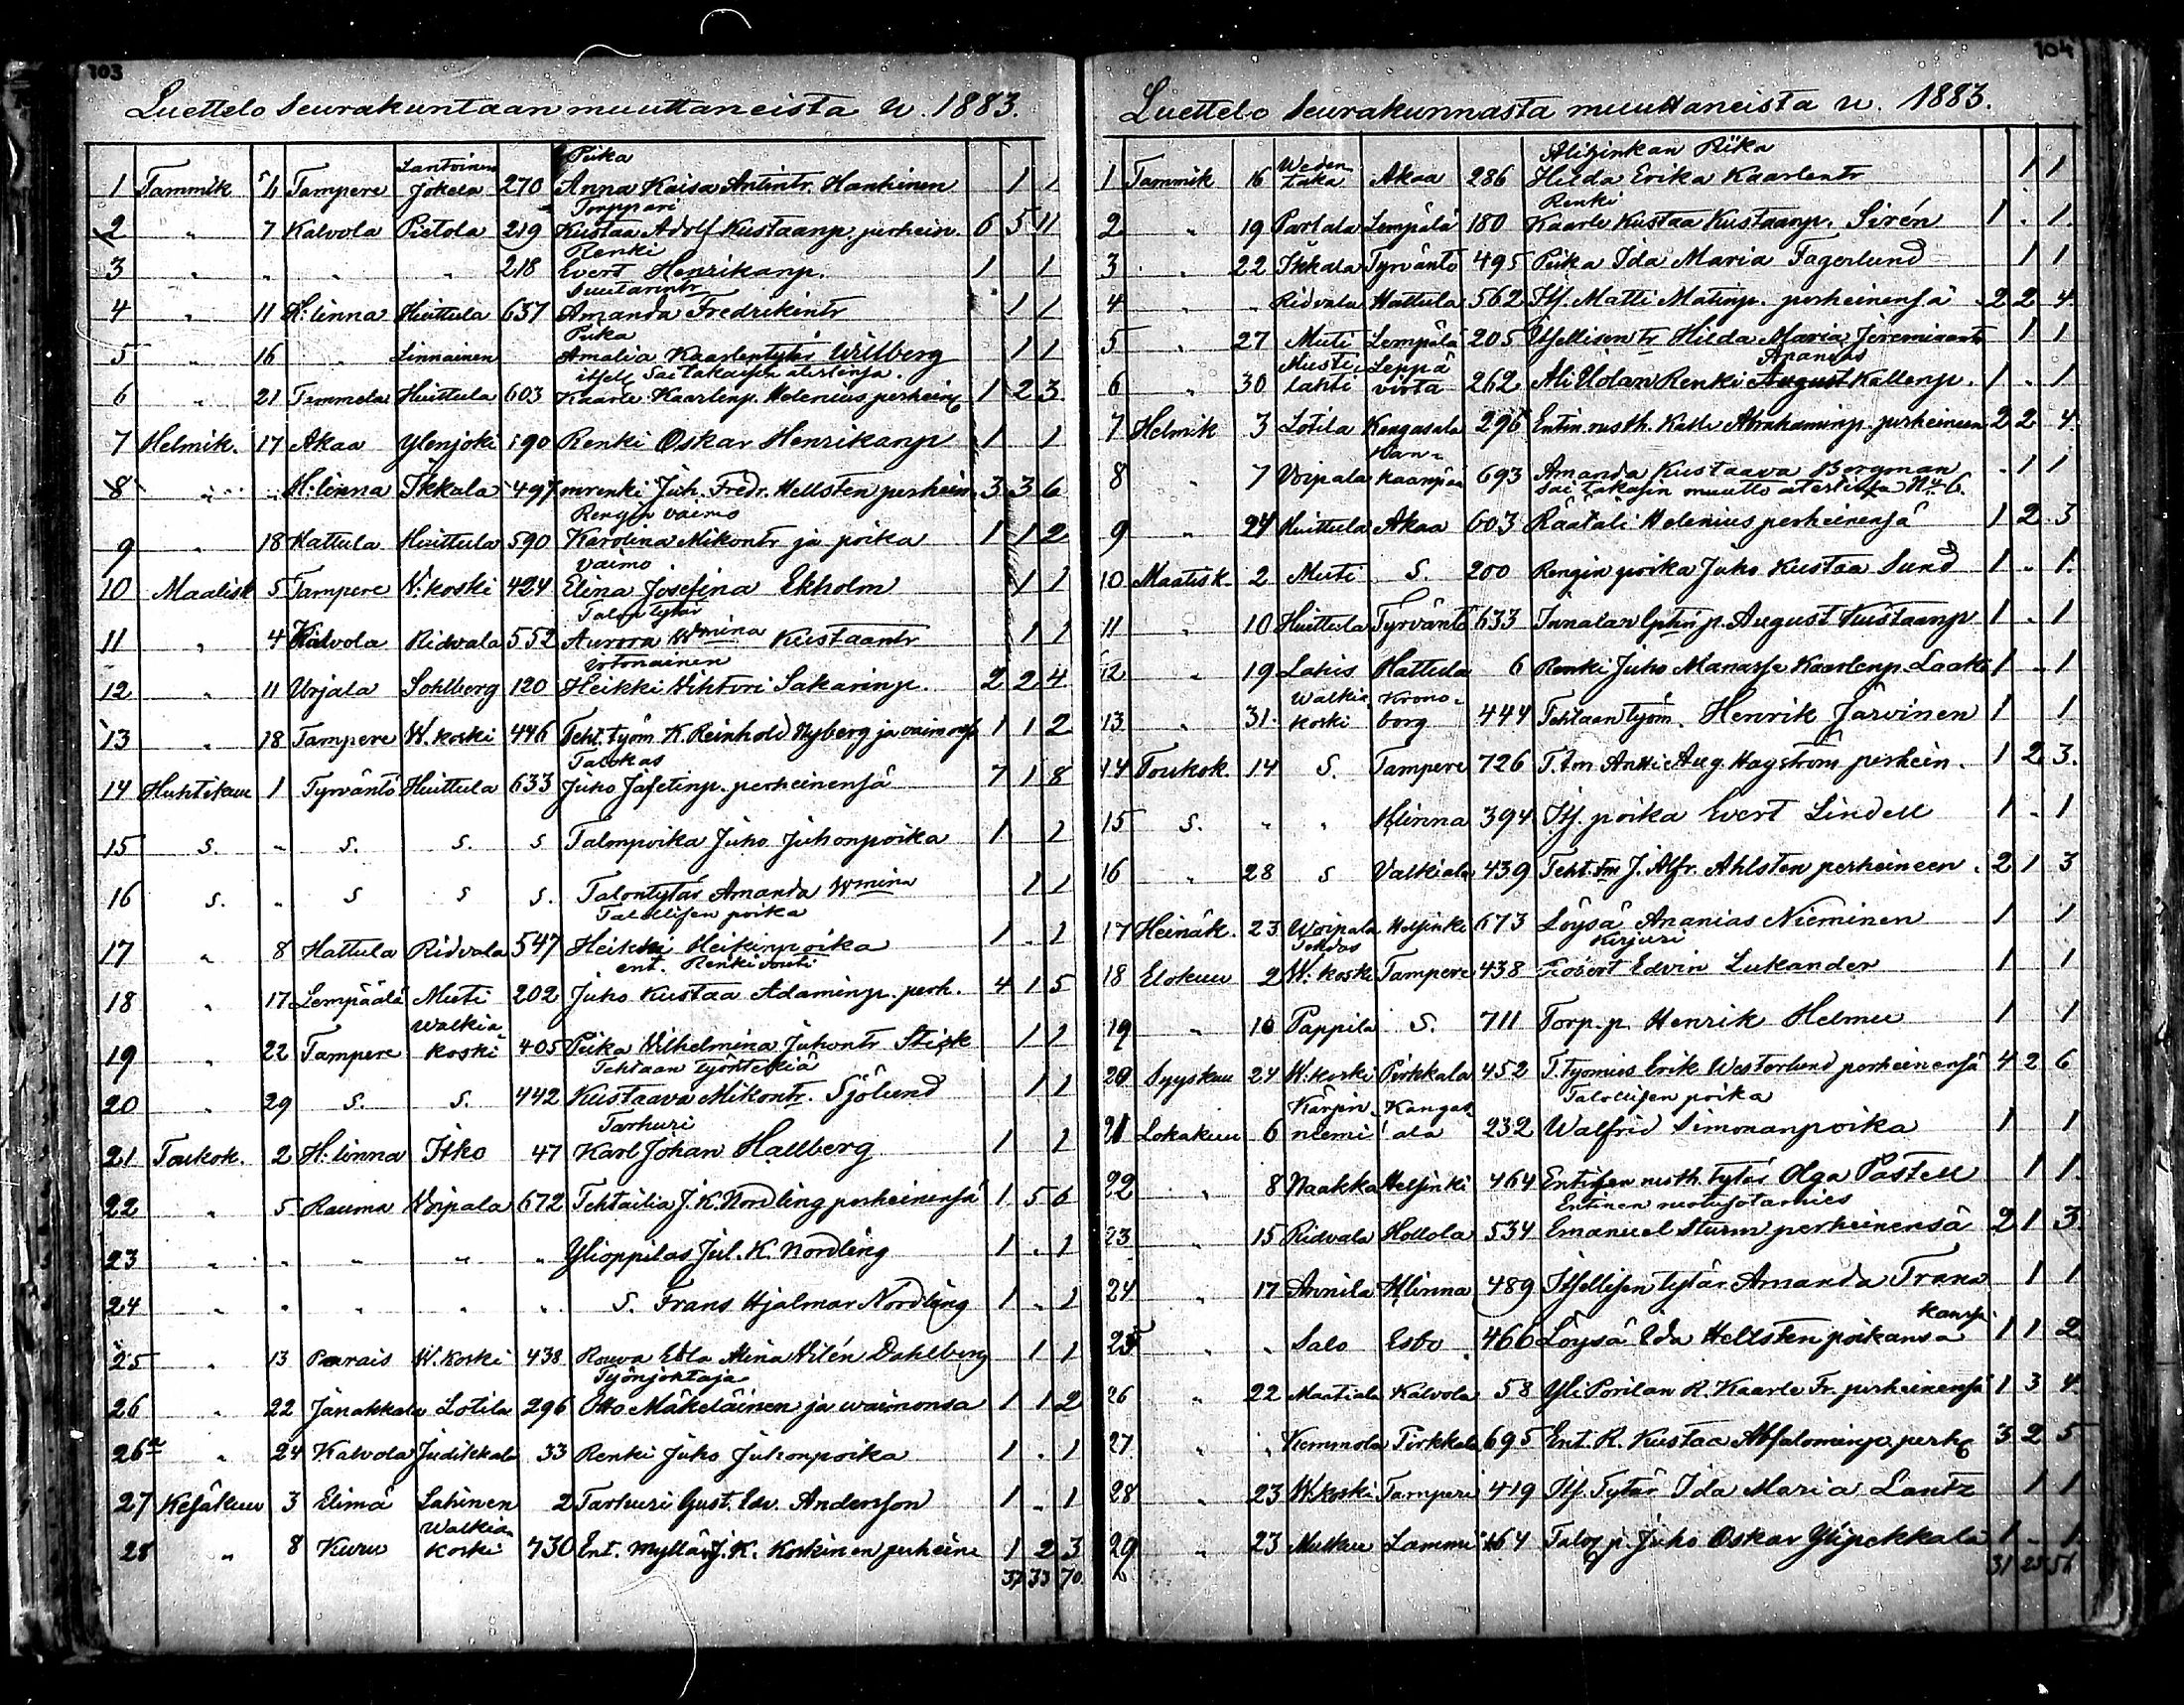 103
Luettelo Seurakuntaan muuttaneista v. 1883.
Piika
1 Tammik 5/6 Tampere Lantoinen Jokela 270 Anna Kaisa Antintr. Hanhinen 1 1
Torppari
2 " 7 Kalvola Pietola 219 Kustaa Adolf Kustaanp. perhein. 6 5 11
Renki
3 " " " " 218 Evert Henrikanp. 1 1
Suutarintr
4 " 11 H:linna Huittula 637 Amanda Fredrikintr 1 1
Piika
5 " 16 " Linnainen Amalia Kaarlentytär Willberg 1 1
itsell. Sai takaisin atestinsa.
6 " 21 Temmela Huittula 603 Kaarle Kaarlenp. Helenius perhein 1 2 3
7 Helmik. 17 Akaa Ylenjoki 190 Renki Oskar Henrikanp 1 1
8 " " H:linna Ikkala 497 mrenki Juh. Fredr. Hellsten perhein. 3 3 6
Rengin vaimo
9 " 18 Hattula Huittula 590 Karolina Mikontr ja poika 1 1 2
Vaimo
10 Maalisk 5 Tampere W:koski 424 Elina Josefina Ekholm 1 1
Talon tytär
11 " 4 Kalvola Ridvala 552 Aurora Wmina Kustaantr 1 1
Irtonainen
12 " 11 Urjala Sohlberg 120 Heikki Vihtori Sakarinp. 2 2 4
13 " 18 Tampere W. koski 446 Teht. työm. K. Reinhold Nyberg ja vaimons 1 1 2
Talokas
14 Huhtikuu 1 Tyrväntö Huittula 633 Juho Jafetinp. perheinensä 7 1 8
15 S. " S. S. S Talonpoika Juho Juhonpoika 1 1
16 S. " S S S. Talontytär Amanda Wmina 1 1
Talollisen poika
17 " 8 Hattula Ridvala 547 Heikki Heikinpoika 1 " 1
ent. Renkivouti
18 " 17 Lempäälä Muti 202 Juho Kustaa Adaminp. perh. 4 1 5
19 " 22 Tampere Walkiakoski 405 Piika Vilhelmina Juhontr Stick 1 1
Tehtaan työntekiä
20 " 29 S. S. 442 Kustaava Mikontr. Sjölund 1 1
Tarhuri
21 Toukok. 2 H:linna Itko 47 Karl Johan Hallberg 1 1
22 " 5 Rauma Voipala 672 Tehtailia J. K. Nordling perheinensä 1 5 6
23 " " " " " Ylioppilas Jul. K. Nordling 1 " 1
24 " " " " " S. Frans Hjalmar Nordling 1 " 1
25 " 13 Parais W. koski 438 Rouva Edla Mina Vilén Dahlberg 1 1
Työnjohtaja
26 " 22 Janakkala Lotila 296 Otto Mäkeläinen ja waimonsa 1 1 2
26a " 24 Kalvola Judikkala 33 Renki Juho Juhonpoika 1 " 1
27 Kesäkuu 3 Elimä Lahinen 2 Tarhuri Gust. Edv. Andersson 1 " 1
28 " 8 Kuru Walkiakoski 730 Ent. mylläri J. K. Koskinen perheine 1 2 3
37 33 70
104
Luettelo Seurakunnasta muuttaneista v. 1883.
Alizinkan Piika
1 Tammik 16 Weden taka Akaa 286 Hilda Erika Kaarlentr 1 1
Renki
2 " 19 Partala Lempälä 180 Kaarle Kustaa Kustaanp. Sirén 1 " 1
3 " 22 Ikkala Tyrväntö 495 Piika Ida Maria Fagerlund 1 1
4 " " Ridvala Hattula 562 Its. Matti Matinp. perheinensä 2 2 4
5 " 27 Muti Lempälä 205 Itsellisen tr Hilda Maria Jeremiaantr 1 1
Apanias
6 " 30 Mustilahti Leppävirta 262 Ali Uolan Renki August Kallenp. 1 " 1
7 Helmik 3 Lotila Kangasala 296 Entin. rusth. Kalle Abrahaminp. perheineen 2 2 4
8 " 7 Voipala Kankaanpää 693 Amanda Kustaava Bergman " 1 1
Sai takasin muutto atestinsa No 6.
9 " 24 Huittula Akaa 603 Räätäli Helenius perheinensä 1 2 3
10 Maalisk 2 Muti S. 200 Rengin poika Juho Kustaa Sund 1 " 1
11 " 10 Huittula Tyrväntö 633 Innalan August Kustaanp 1 " 1
12 " 19 Lahis Hattula 6 Renki Juho Manasse Kaarlenp. Laakso 1 " 1
13 " 31 Walkiakoski Kronoborg 444 Tehtaan työm. Henrik Järvinen 1 1
14 Toukok. 14 S. Tampere 726 T. tm Antti Aug. Hagström perhein. 1 2 3
15 S. " " H:linna 394 Its. poika Evert Lindell 1 " 1
16 " 28 S Valkiala 439 Teht. tm J. Alfr. Ahlsten perheineen. 2 1 3
17 Heinäk. 23 Woipala Helsinki 673 Löysä Ananias Nieminen 1 1
Kirjuri
18 Elokuu 2 Tehdas W. koski Tampere 438 Robert Edvin Lukander 1 1
19 " 10 Pappila S. 711 Torp. p. Henrik Helmee 1 1
20 Syyskuu 24 W. koski Pirkkala 452 T. työmies Erik Westerlund perheinensä 4 2 6
Talollisen poika
21 Lokakuu 6 Kärjinniemi Kangasala 232 Walfrid Simonanpoika 1 1
22 " 8 Naakka Helsinki 464 Entisen rusth. tytär Olga Pastell 1 1
Entinen ruotusotamies
23 " 15 Ridvala Hollola 534 Emanuel Sturm perheinensä 2 1 3
24 " 17 Annila H:linna 489 Itsellisen tytär Amanda Trana 1 1
kanssa
25 " " Salo Esbo 466 Löysä Eda Hellsten poikansa 1 1 2
26 " 22 Maatiala Kalvola 58 Yli Porilan R. Kaarle Fr. perheinensä 1 3 4
27 " " Kemmola Pirkkala 695 Ent. R. Kustaa Absalominp. perh 3 2 5
28 " 23 W.koski Tamperi 419 Its. Tytär Ida Maria Lantz 1 1
29 " 23 Mulkuu Lammi 164 Talon p. Juho Oskar Ylipekkala 1 " 1
31 25 56